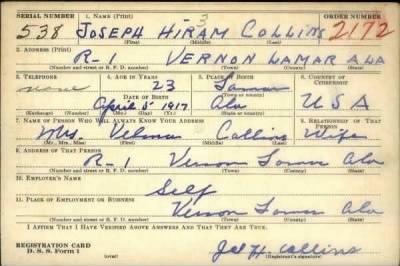 SERIAL NUMBER 1. NAME (Print) ORDER NUMBER
3
538 JOSEPH HIRAM COLLINS 2172
(First) (Middle) (Last)
2. ADDRESS (Print)
R-1 VERNON LAMAR ALA
(Number and street or R. F. D. number) (Town) (County) (State)
3. TELEPHONE 4. AGE IN YEARS 5. PLACE OF BIRTH 6. COUNTRY OF CITIZENSHIP
none 23 Lamar
DATE OF BIRTH (Town or county)
April 5 1917 Ala USA
(Exchange) (Number) (Mo.) (Day) (Yr.) (State or country)
7. NAME OF PERSON WHO WILL ALWAYS KNOW YOUR ADDRESS 8. RELATIONSHIP OF THAT PERSON
Mrs. Velma Collins Wife
(Mr., Mrs., Miss) (First) (Middle) (Last)
9. ADDRESS OF THAT PERSON
R-1 Vernon Lamar Ala
(Number and street or R. F. D. number) (Town) (County) (State)
10. EMPLOYER'S NAME
Self
11. PLACE OF EMPLOYMENT OR BUSINESS
Vernon Lamar Ala
(Number and street or R. F. D. number) (Town) (County) (State)
I AFFIRM THAT I HAVE VERIFIED ABOVE ANSWERS AND THAT THEY ARE TRUE.
REGISTRATION CARD
D. S. S. Form 1 (over) Joe H. Collins
(Registrant's signature)